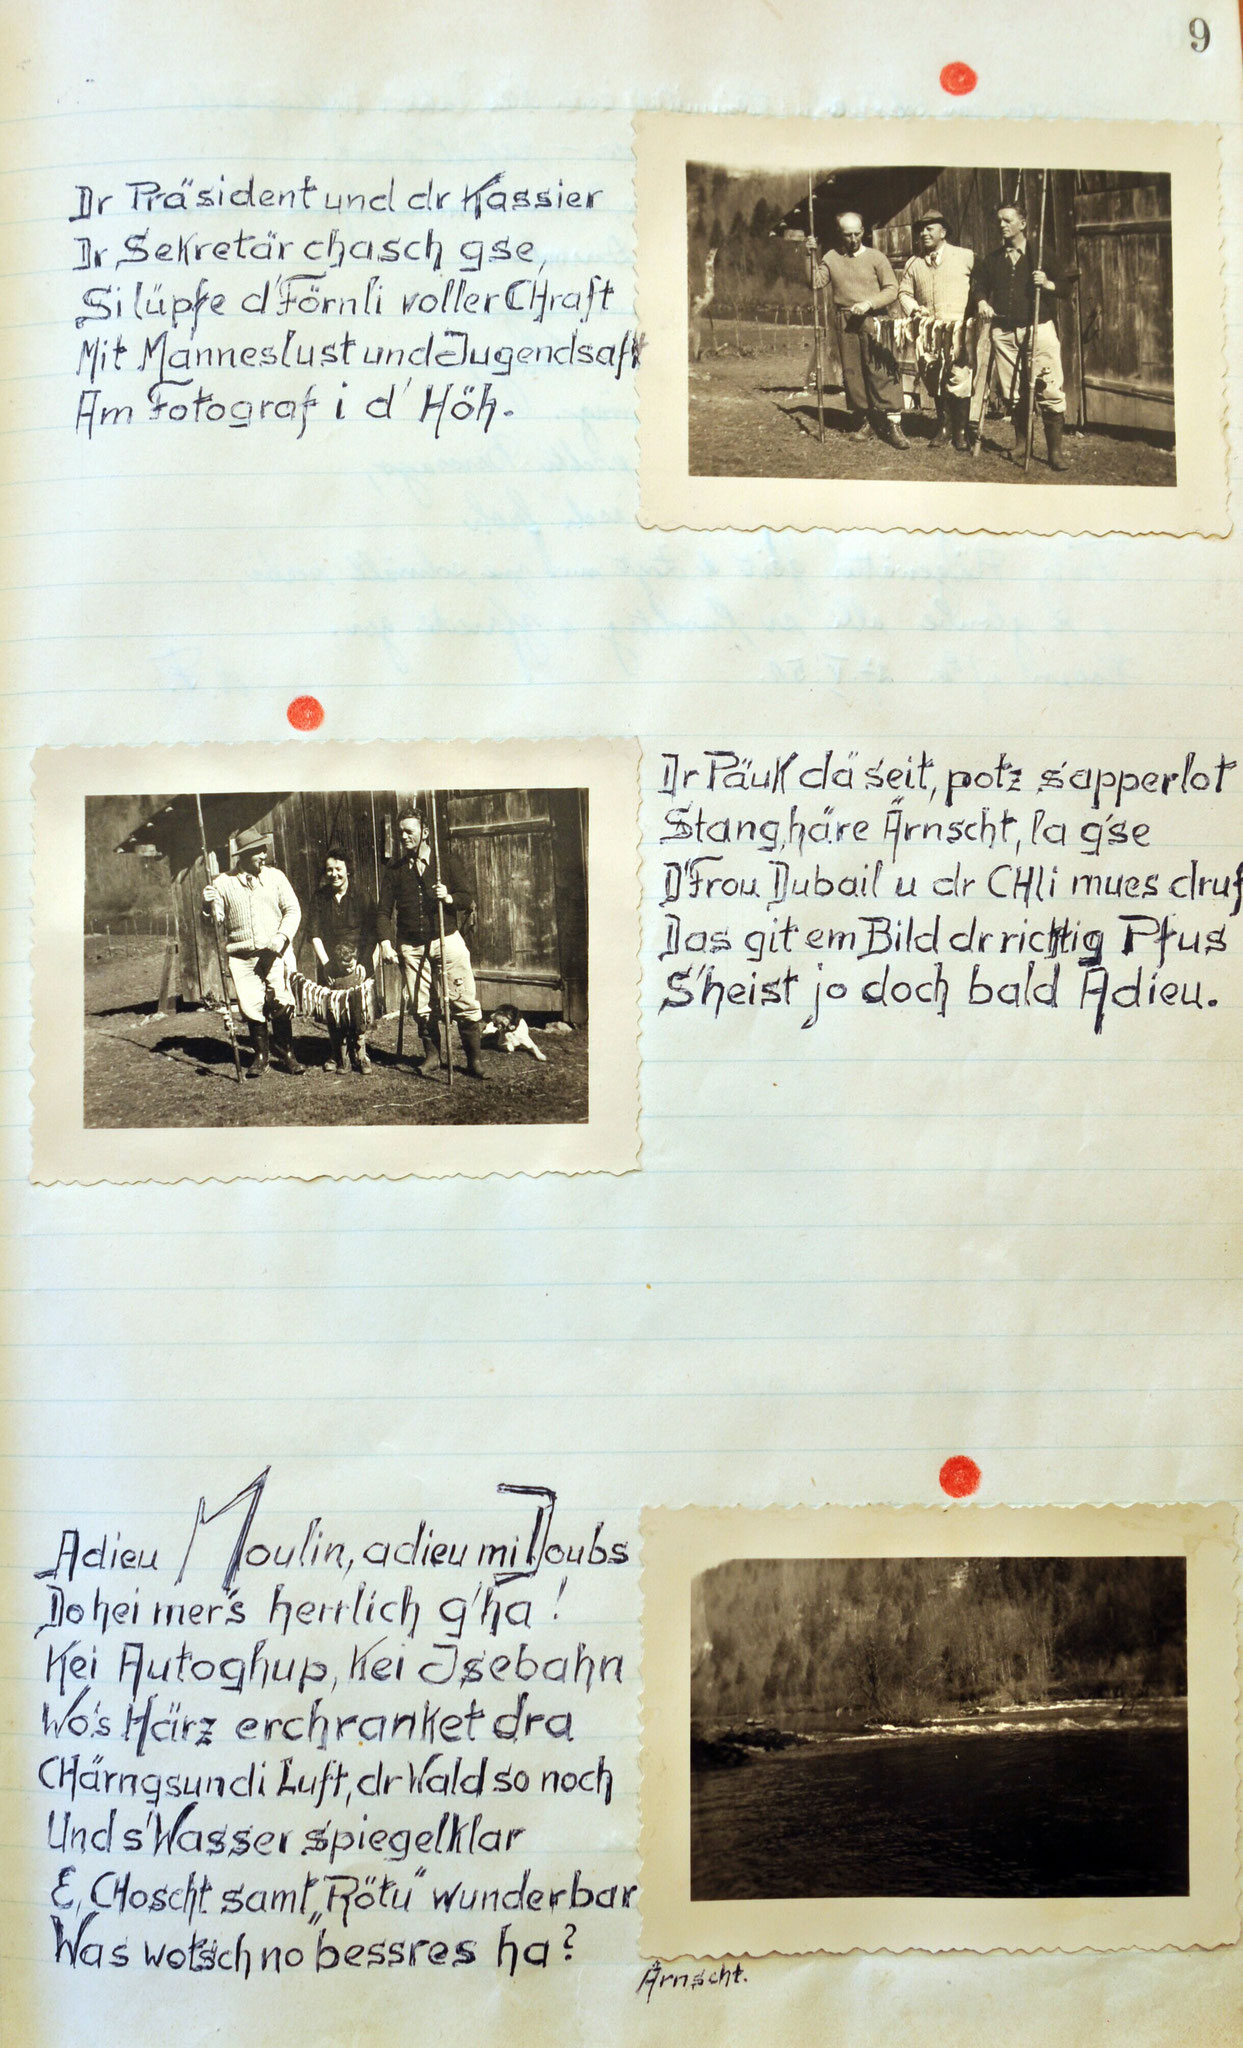 9
Dr Präsident und dr Kassier
Dr Sekretär chasch gse,
Si lüpfe d'Förnli voller CHraft
Mit Manneslust und Jugendsaft
Am Fotograf i d' Höh.
Dr Päuk dä seit, potz sapperlot
Stang häre Ärnscht, la g'se
D'Frou Dubail u dr CHli mues druf
Das git em Bild dr richtig Pfus
S'heist jo doch bald Adieu.
Adieu Moulin, adieu mi Doubs
Do hei mer's herrlich g'ha!
Kei Autoghup, Kei Isebahn
Wo's Härz erchranket dra
CHärngsundi Luft, dr Wald so noch
Und s'Wasser spiegelklar
E, CHoscht samt „Rötu" wunderbar
Was wotsch no bessres ha?
Ärnscht.